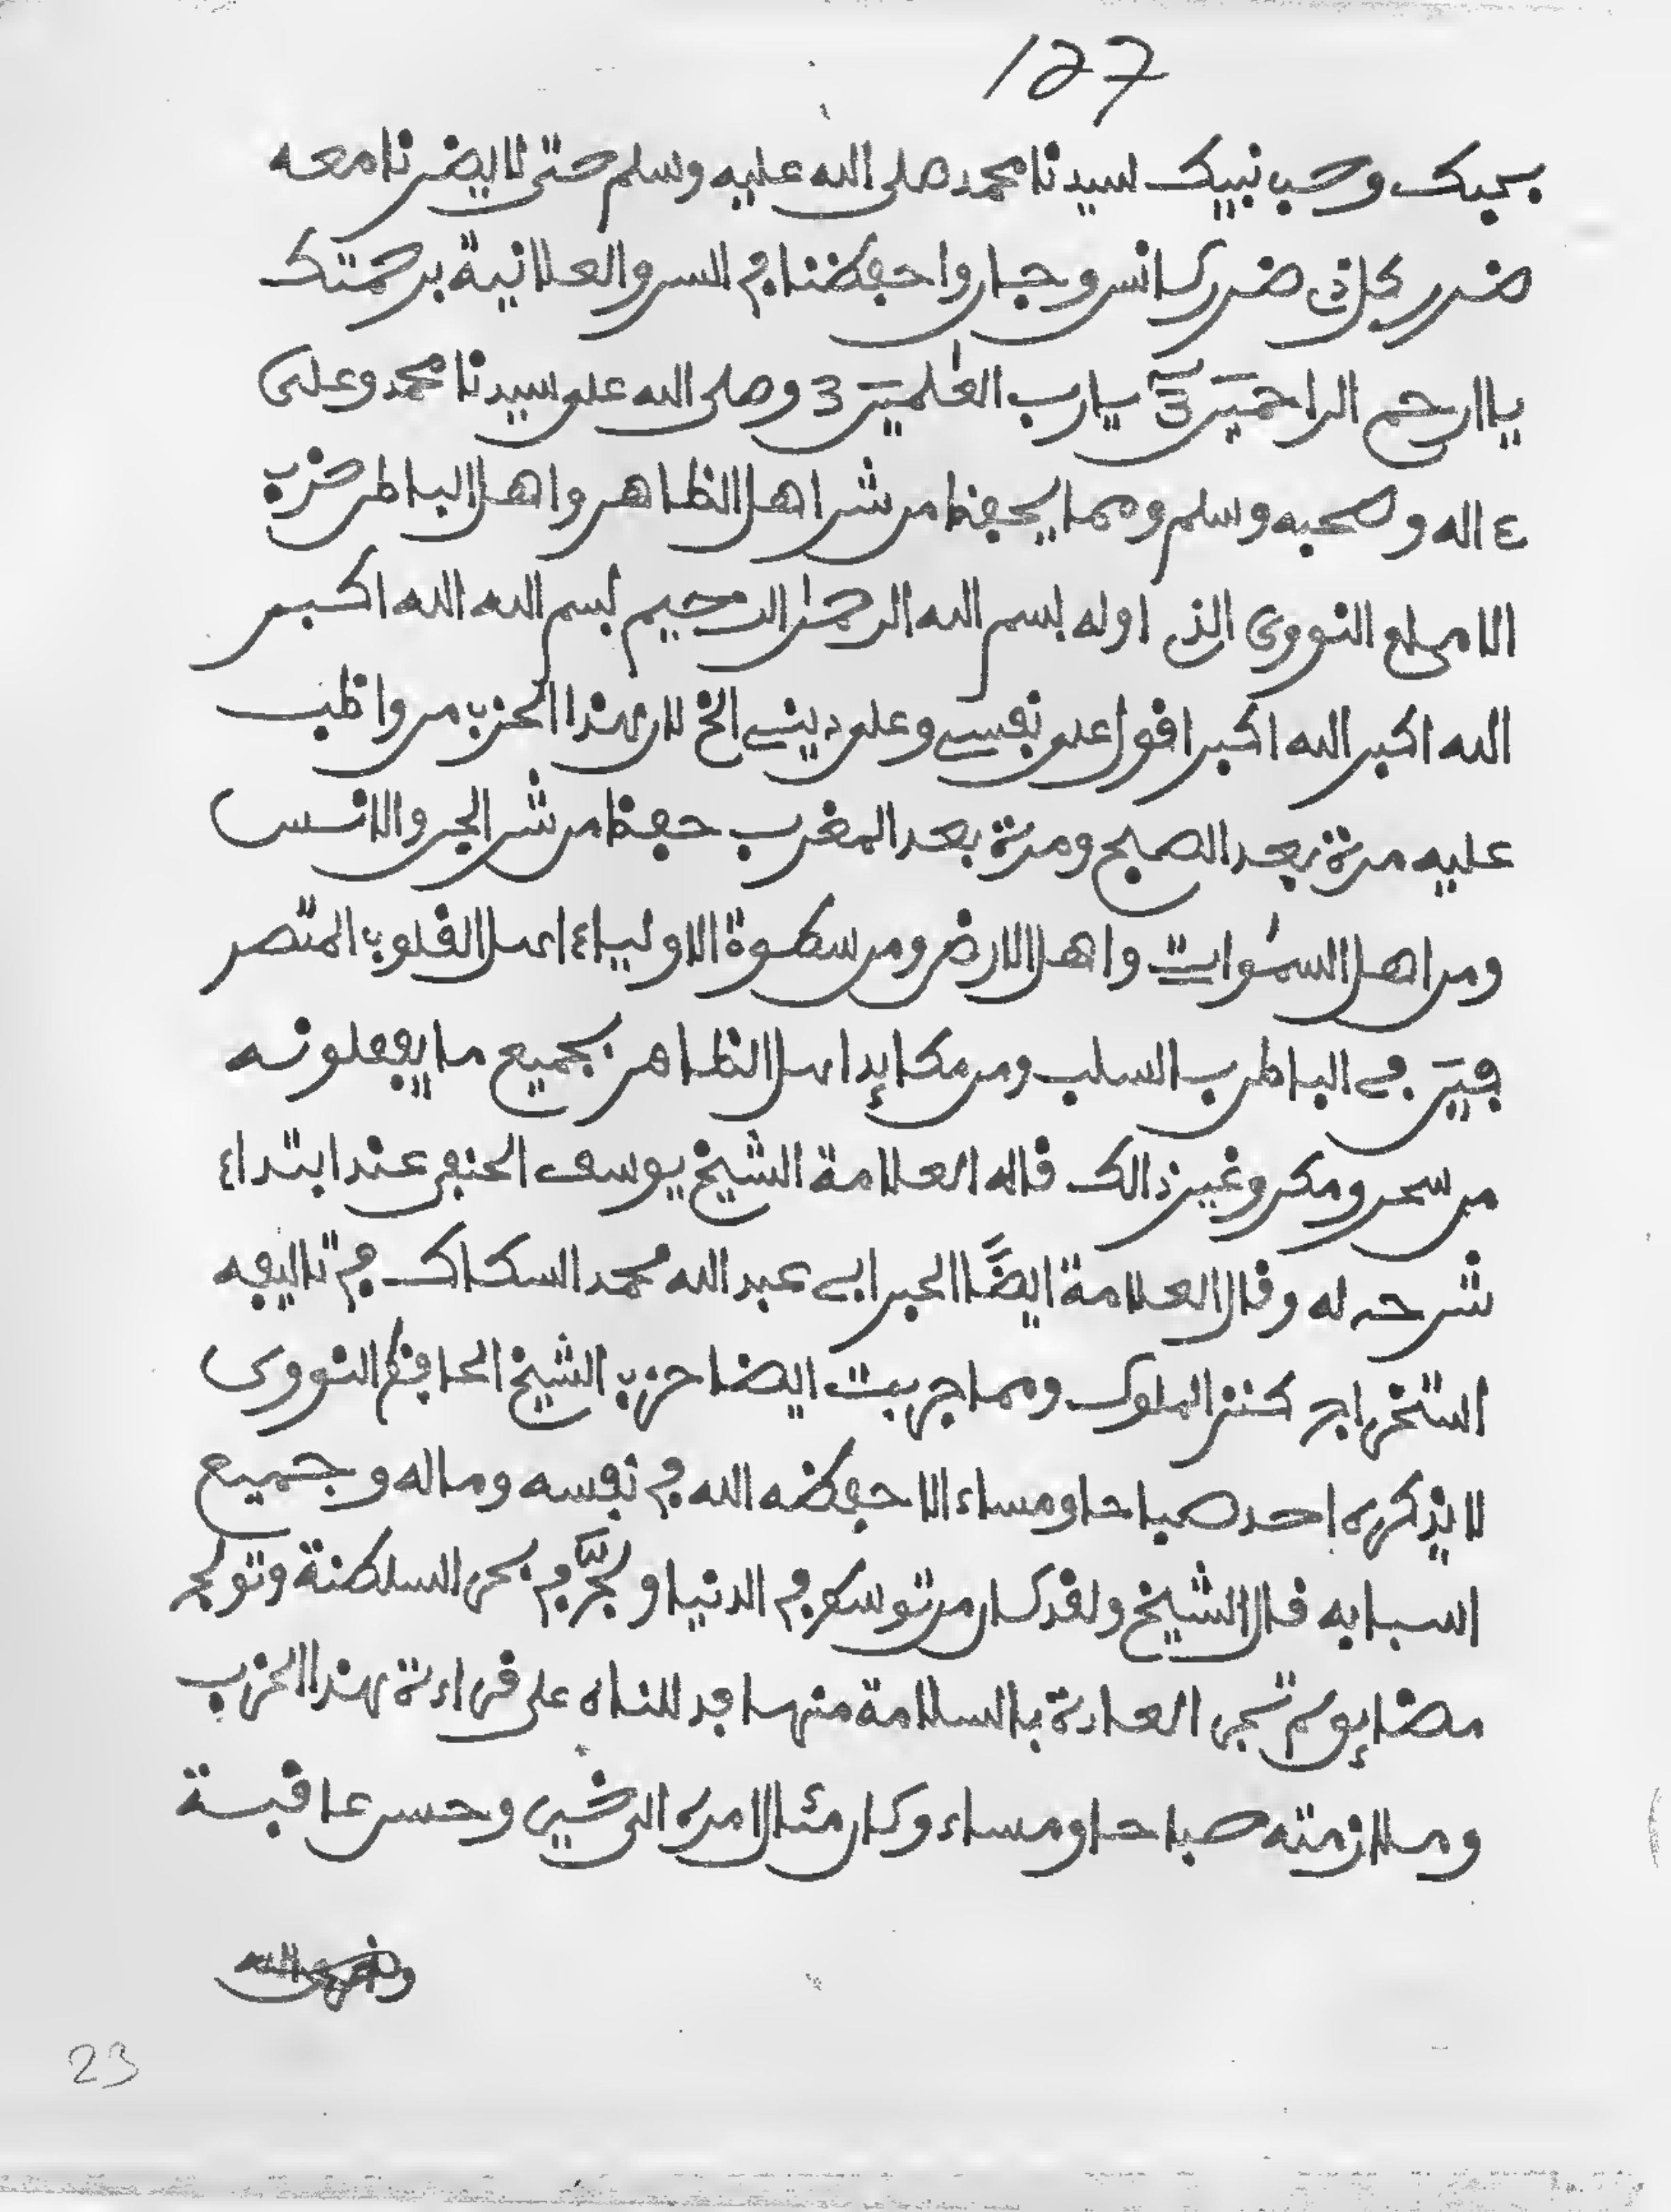 127
بحبك وحب نبيك سيدنا محمد صلى الله عليه وسلم حتى لا يضرنا معه
ضرر كل ذى ضرر كانس وجان واحفظنا في السر والعلانية برحمتك
يا ارحم الراحمين 3 يا رب العلمين 3 وصلى الله على سيدنا محمد وعلى
ءاله وصحبه وسلم ومما يحفظ من شر اهل الظاهر واهل الباطن حزب
الامام النووي الذي اوله بسم الله الرحمن الرحيم بسم الله الله اكبر
الله اكبر الله اكبر اقول على نفسي وعلى ديني الخ لان هذا الحزب من واظب
عليه مرة بعد الصبح ومرة بعد المغرب حفظ من شر الجن والانس
ومن اهل السموات واهل الارض ومن سطوة الاولياء اهل القلوب المتصر
فين في الباطن ب السلب ومن مكايد اهل الظاهر بجميع ما يفعلونه
من سحر ومكر وغير ذالك قاله العلامة الشيخ يوسف الحنفي عند ابتداء
شرحه له وقال العلامة ايضًا الحبر ابي عبد الله محمد السكاك في تاليفه
استخراج كنز الملوك ومما جربت ايضا حزب الشيخ الحافظ النووى
لا يذكره احد صباحا ومساء الا حفظه الله في نفسه وماله وجميع
اسبابه قال الشيخ ولقد كان من توسع في الدنيا و في بحر السلطنة وتولى
مضايق لم تجر العادة بالسلامة منها قد للناه على قراءة هذا الحزب
وملازمته صباحا ومساء وكان مئال امره الى خير وحسن عاقبة
23